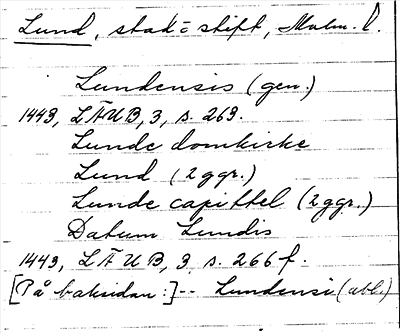 Lund, stad o stift, Malm. l.
Lundensis (gen.)
1443, LÄUB, 3, s. 263.
Lunde domkirke
Lund (2 ggr.)
Lunde capittel (2 ggr.)
Datum Lundis
1443, LÄUB, 3, s. 266 f.
[På baksidan:] -- Lundensi (abl.)